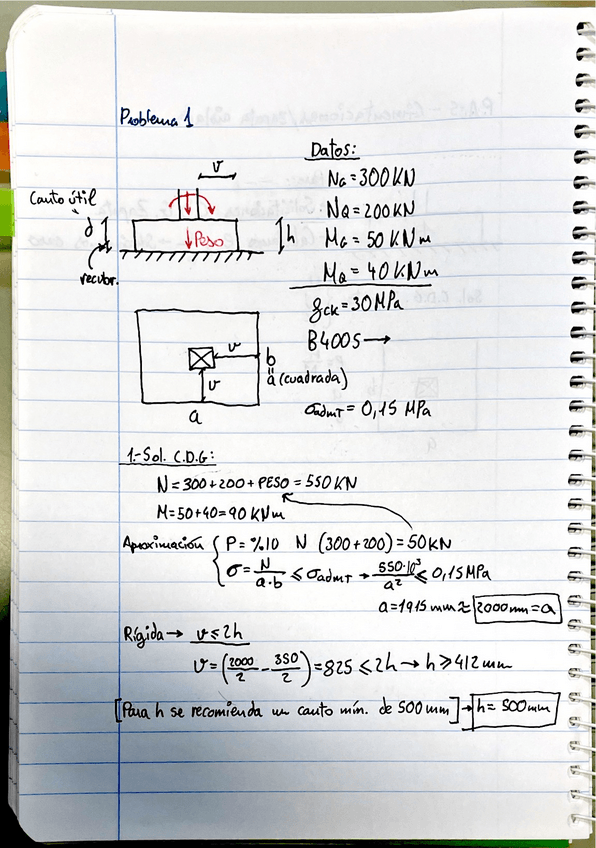 Problema 1
Datos:
N_G = 300 KN
N_Q = 200 KN
M_G = 50 KN m
M_Q = 40 KN m
f_ck = 30 MPa
B400S →
σ_admT = 0,15 MPa
v
Canto útil
d
recubr.
Peso
h
v
v
b
=
a (cuadrada)
a
1.- Sol. C.D.G:
N = 300 + 200 + PESO = 550 KN
M = 50 + 40 = 90 KNm
Aproximación { P = %10 N (300+200) = 50 KN
σ = N/(a·b) ≤ σ_admT → 550·10³/a² ≤ 0,15 MPa
a = 1915 mm ≈ 2000 mm = a
Rígida → v ≤ 2h
v = (2000/2 - 350/2) = 825 ≤ 2h → h ≥ 412 mm
[Para h se recomienda un canto mín. de 500 mm] → h = 500 mm